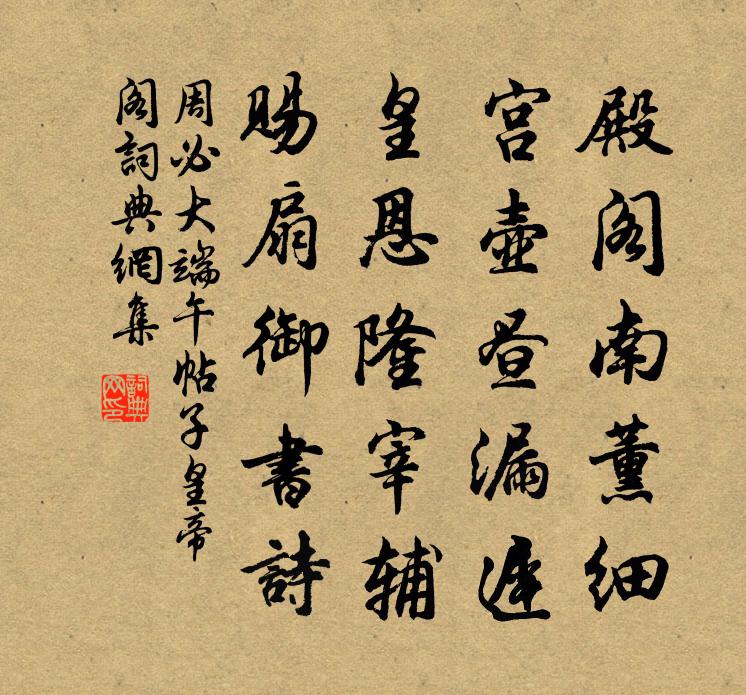 殿阁南薰细
宫壶昼漏遲
皇恩隆宰辅
赐扇御書詩
周必大端午帖子皇帝
阁詞典網集
詞典網印